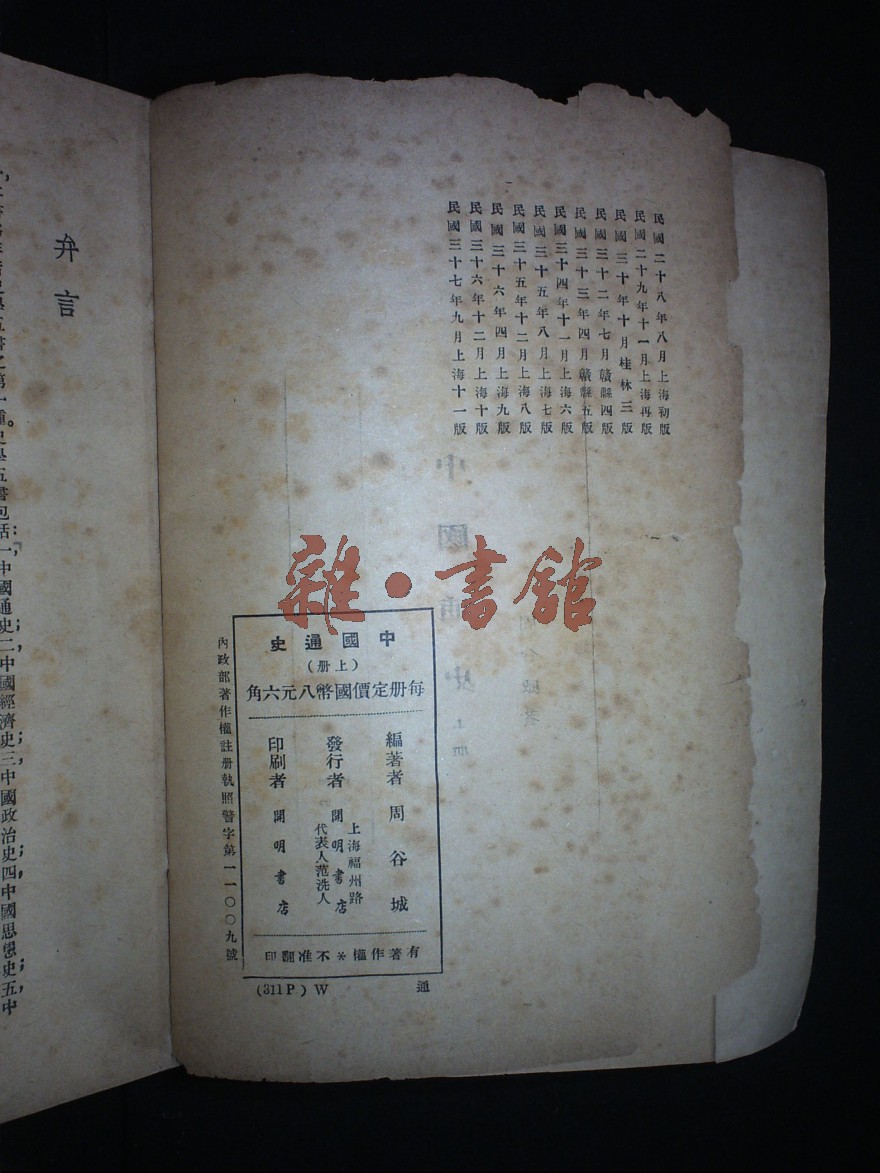 民國二十八年八月上海初版
民國二十九年十一月上海再版
民國三十年十月桂林三版
民國三十二年七月贛縣四版
民國三十三年四月贛縣五版
民國三十四年十一月上海六版
民國三十五年八月上海七版
民國三十五年十二月上海八版
民國三十六年四月上海九版
民國三十六年十二月上海十版
民國三十七年九月上海十一版
雜·書館
中國通史
(上册)
每册定價國幣八元六角
編著者 周谷城
發行者 上海福州路
開明書店
代表人范洗人
印刷者 開明書店
有著作權*不准翻印
內政部著作權註册執照警字第一一〇〇九號
通
(311P.) W
弁言
學五書之第一種。史學五書包括：一，中國通史；二中國經濟史；三，中國政治史；四中國思想史；五，中